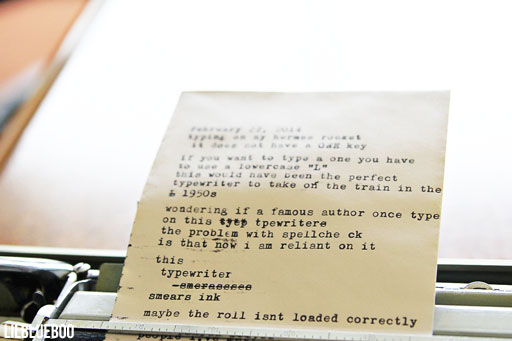 february 22, 2014
typing on my hermes rocket
it does not have a ONE key
if you want to type a one you have
to use a lowercase "L"
this would have been the perfect
typewriter to take on the train in the
1950s
wondering if a famous author once type
on this tpewriters
the problem with spellche ck
is that now i am reliant on it
this
typewriter
smeraseees
smears ink
maybe the roll isnt loaded correctly
people
LILBLUEBOO